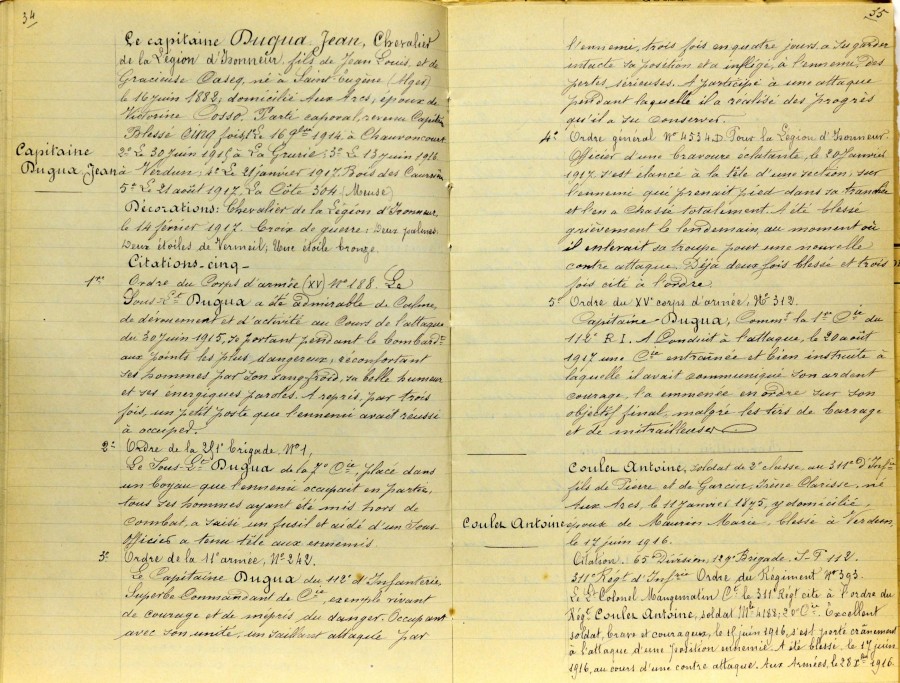 34
Le capitaine Dugua Jean, Chevalier
de la Légion d'Honneur, fils de Jean Louis, et de
Gracieuse Cascq, né à Saint Eugène (Alger)
le 16 juin 1882; domicilié Aux Arcs; époux de
Victorine Cosso. Parti caporal, revenu Capitne
Blessé cinq fois, 1° Le 16 9bre 1914 à Chauvoncourt
2° Le 30 juin 1915 à La Grurie; 3° Le 13 juin 1916
Capitaine
Dugua, Jean
à Verdun; 4° Le 21 janvier 1917. Bois des Caurières
5° Le 21 août 1917, La Côte 304 (Meuse)
Décorations: Chevalier de la Légion d'Honneur,
le 14 février 1917. Croix de guerre; Deux palmes;
Deux étoiles de Vermeil; Une étoile bronze.
Citations-cinq-
1° Ordre du Corps d'armée (XV) N° 188. Le
Sous-Lt Dugua a été admirable de Calme,
de dévouement et d'activité au Cours de l'attaque
du 30 juin 1915, se portant pendant le bombardt
aux points les plus dangereux, réconfortant
ses hommes par son sang froid, sa belle humeur
et ses énergiques paroles. A repris, par trois
fois, un petit poste que l'ennemi avait réussi
à occuper.
2° Ordre de la 251e brigade, N° 1,
Le Sous-Lt Dugua de la 7e Cie, placé dans
un boyau que l'ennemi occupait en partie,
tous ses hommes ayant été mis hors de
combat, a saisi un fusil et aidé d'un Sous-
Officier a tenu tête aux ennemis.
3° Ordre de la 11e armée, N° 242.
Le Capitaine Dugua du 112e d'Infanterie,
Superbe Commandant de Cie, exemple vivant
de courage et de mépris du danger. Occupant
avec son unité, un saillant attaqué par
35
l'ennemi, trois fois en quatre jours, a su garder
intacte sa position et a infligé, à l'ennemi, des
pertes sérieuses. A participé à une attaque
pendant laquelle il a réalisé des progrès
qu'il a su conserver.
4° Ordre général N° 4334.D. Pour la Légion d'Honneur
Officier d'une bravoure éclatante, le 20 Janvier
1917. s'est élancé à la tête d'une section, sur
l'ennemi qui prenait pied dans sa tranchée
et l'en a chassé totalement. A été blessé
grièvement le lendemain, au moment où
il enlevait sa troupe pour une nouvelle
contre attaque. Déjà deux fois blessé et trois
fois cité à l'ordre.
5° Ordre du XVe corps d'armée, N° 312.
Capitaine Dugua, Commt la 1re Cie du
112e R.I. A Conduit à l'attaque, le 20 août
1917 une Cie entraînée et bien instruite à
laquelle il avait communiqué son ardent
courage, l'a emmenée en ordre sur son
objectif final, malgré les tirs de barrage
et de mitrailleuses
Coulet Antoine, soldat de 2e classe, au 311e d'Infie
fils de Pierre et de Garcin, Irène Clarisse, né
Aux Arcs, le 11 Janvier 1875, y domicilié,
Coulet Antoine
époux de Maurin Marie. blessé à Verdun,
le 17 juin 1916.
Citation. 65e Division, 129e Brigade. S.P. 112.
311e Régt d'Infrie Ordre du Régiment N° 393.
Le Lt Colonel Mangematin Ct le 311e Régt cite à l'ordre du
Régt Coulet Antoine, soldat Mle 4188; 20e Cie. Excellent
soldat, brave et courageux, le 15 juin 1916, s'est porté crânement
à l'attaque d'une position ennemie. A été blessé le 17 juin
1916, au cours d'une contre attaque. Aux Armées, le 28 Xbre 1916.